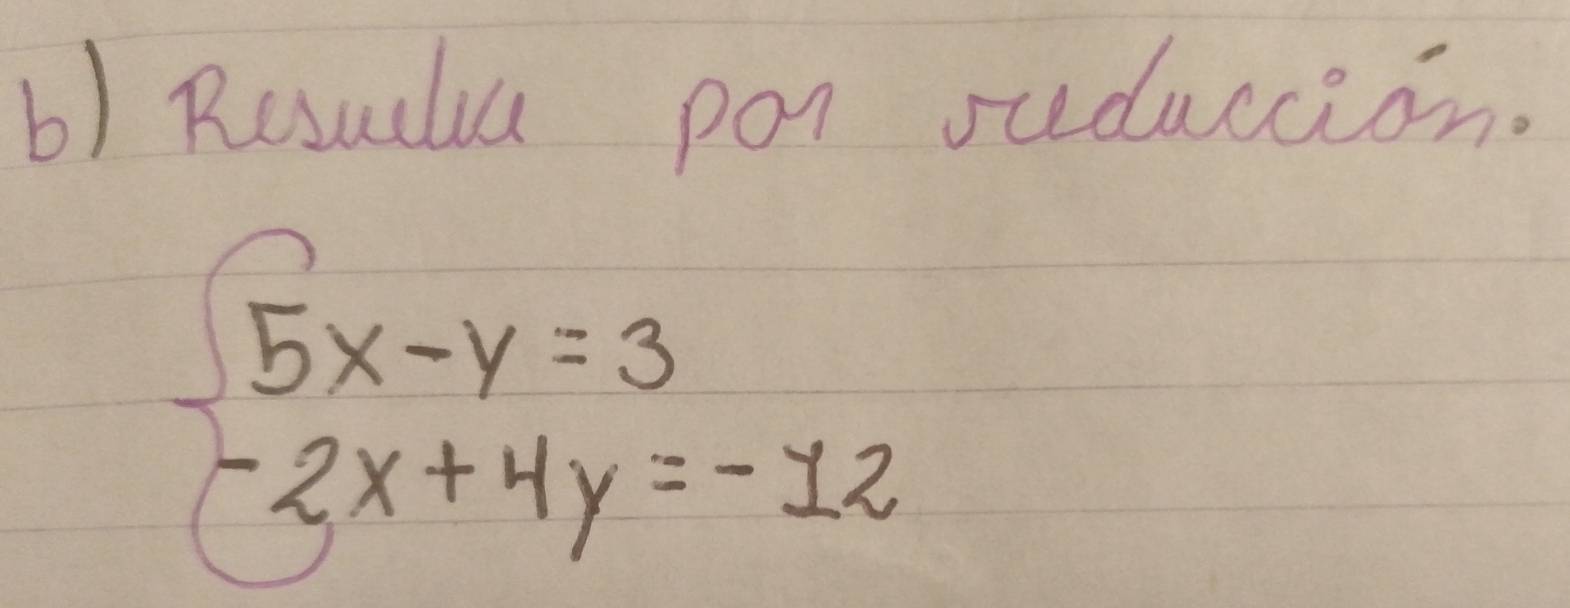 b) Resuelve por reducción.
5x-y=3
-2x+4y=-12